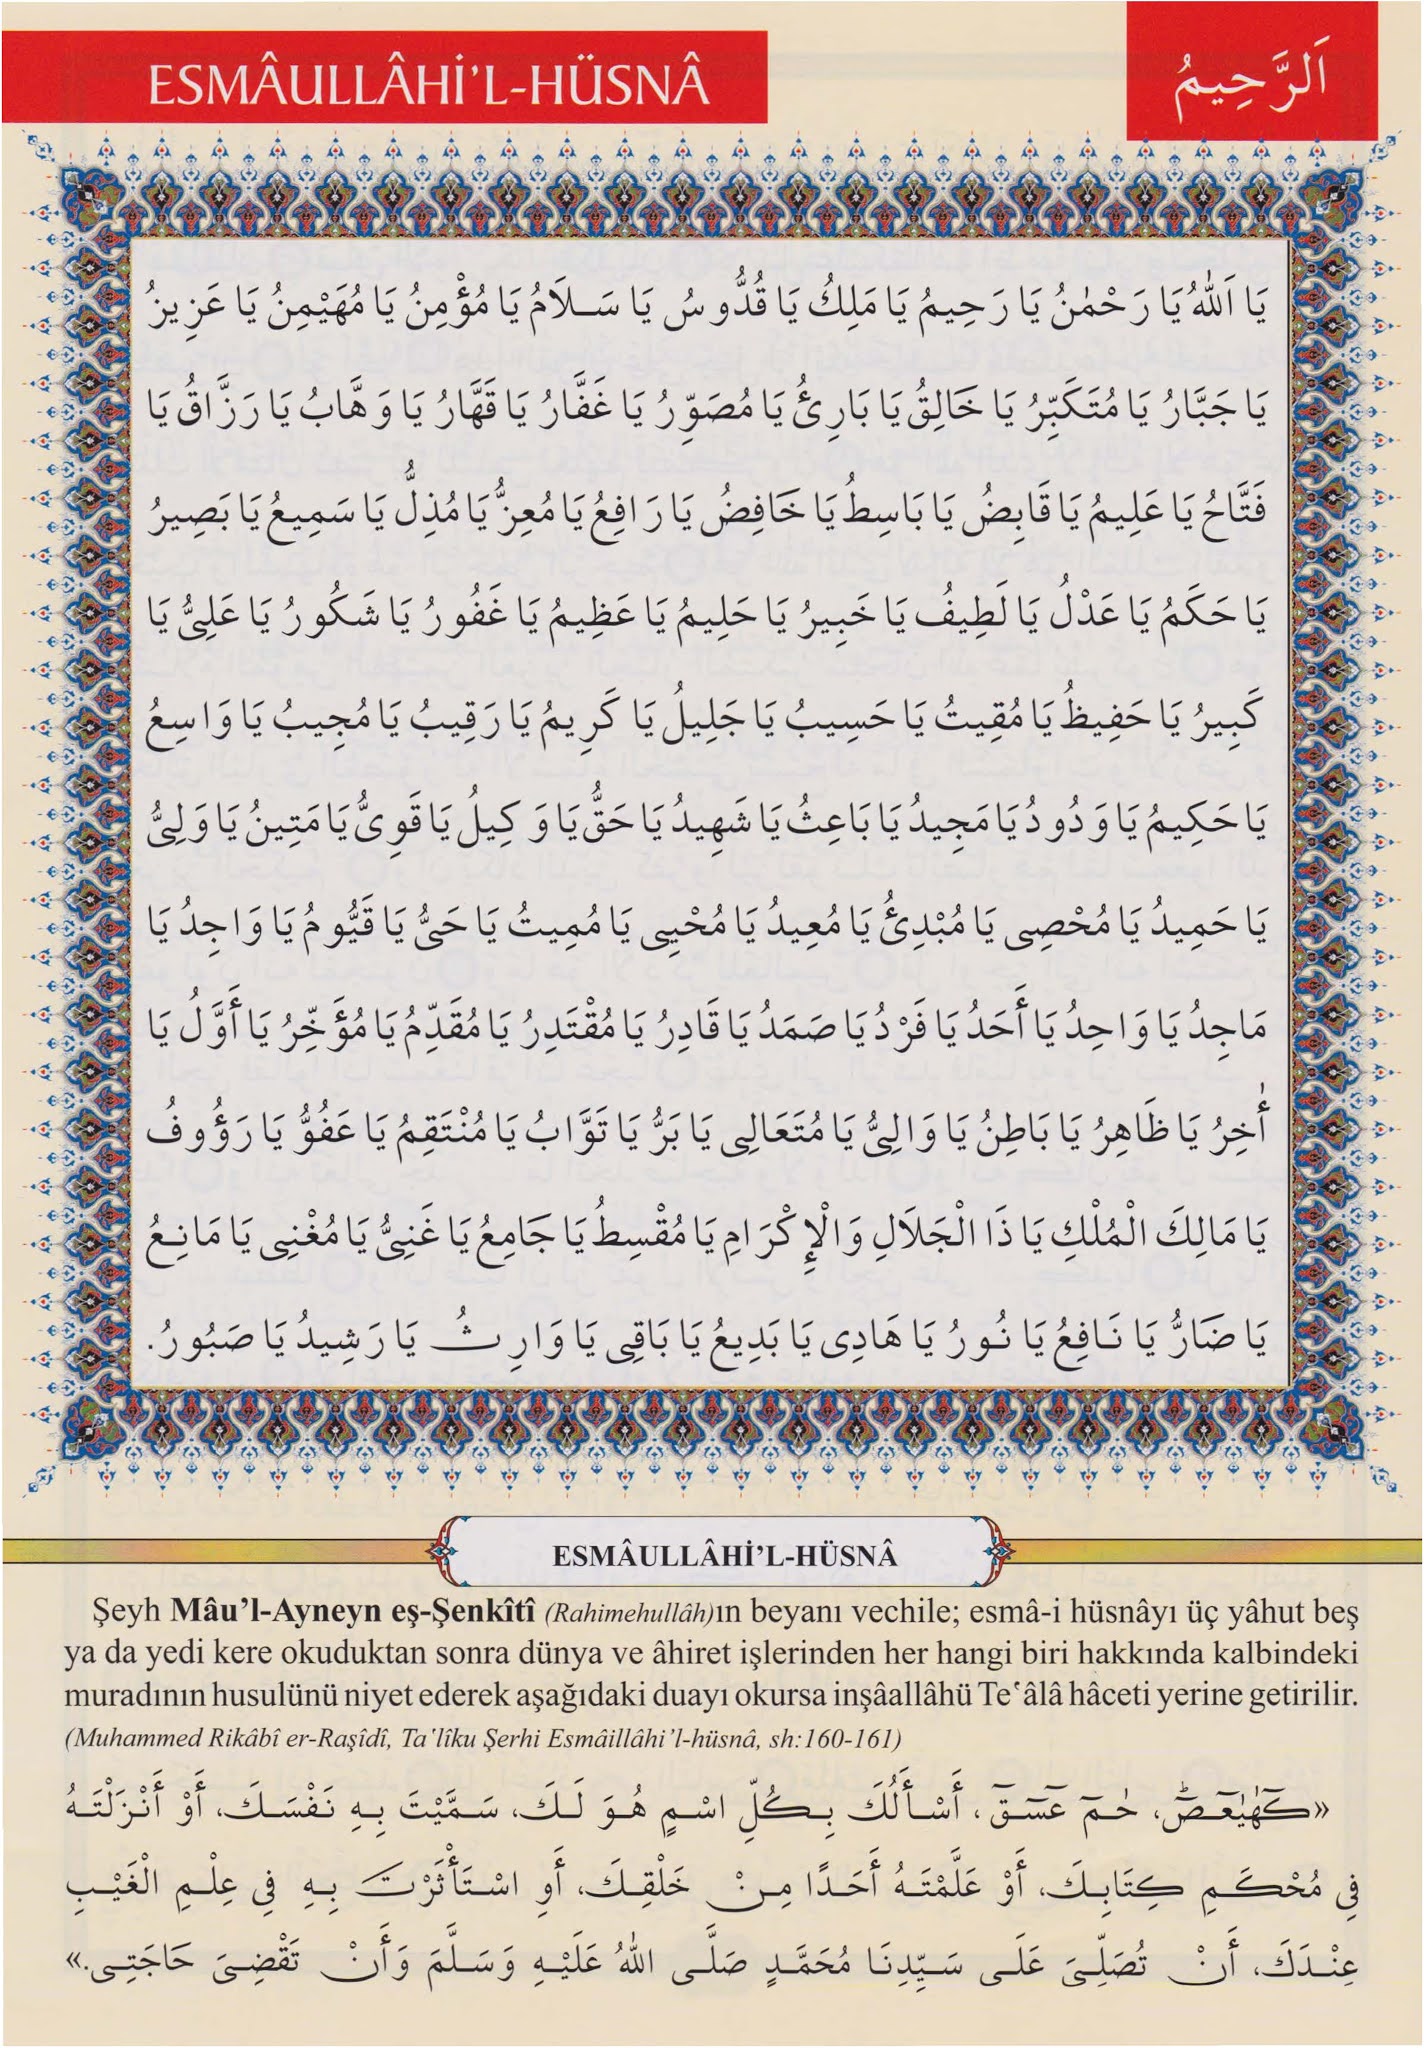 ESMÂULLÂHİ’L-HÜSNÂ
اَلرَّحِيمُ
يَا اَللّٰهُ يَا رَحْمٰنُ يَا رَحِيمُ يَا مَلِكُ يَا قُدُّوسُ يَا سَلَامُ يَا مُؤْمِنُ يَا مُهَيْمِنُ يَا عَزِيزُ
يَا جَبَّارُ يَا مُتَكَبِّرُ يَا خَالِقُ يَا بَارِئُ يَا مُصَوِّرُ يَا غَفَّارُ يَا قَهَّارُ يَا وَهَّابُ يَا رَزَّاقُ يَا
فَتَّاحُ يَا عَلِيمُ يَا قَابِضُ يَا بَاسِطُ يَا خَافِضُ يَا رَافِعُ يَا مُعِزُّ يَا مُذِلُّ يَا سَمِيعُ يَا بَصِيرُ
يَا حَكَمُ يَا عَدْلُ يَا لَطِيفُ يَا خَبِيرُ يَا حَلِيمُ يَا عَظِيمُ يَا غَفُورُ يَا شَكُورُ يَا عَلِيُّ يَا
كَبِيرُ يَا حَفِيظُ يَا مُقِيتُ يَا حَسِيبُ يَا جَلِيلُ يَا كَرِيمُ يَا رَقِيبُ يَا مُجِيبُ يَا وَاسِعُ
يَا حَكِيمُ يَا وَدُودُ يَا مَجِيدُ يَا بَاعِثُ يَا شَهِيدُ يَا حَقُّ يَا وَكِيلُ يَا قَوِىُّ يَا مَتِينُ يَا وَلِىُّ
يَا حَمِيدُ يَا مُحْصِى يَا مُبْدِئُ يَا مُعِيدُ يَا مُحْيِى يَا مُمِيتُ يَا حَىُّ يَا قَيُّومُ يَا وَاجِدُ يَا
مَاجِدُ يَا وَاحِدُ يَا أَحَدُ يَا فَرْدُ يَا صَمَدُ يَا قَادِرُ يَا مُقْتَدِرُ يَا مُقَدِّمُ يَا مُؤَخِّرُ يَا أَوَّلُ يَا
أٰخِرُ يَا ظَاهِرُ يَا بَاطِنُ يَا وَالِىُّ يَا مُتَعَالِى يَا بَرُّ يَا تَوَّابُ يَا مُنْتَقِمُ يَا عَفُوُّ يَا رَؤُوفُ
يَا مَالِكَ الْمُلْكِ يَا ذَا الْجَلَالِ وَالْإِكْرَامِ يَا مُقْسِطُ يَا جَامِعُ يَا غَنِىُّ يَا مُغْنِى يَا مَانِعُ
يَا ضَارُّ يَا نَافِعُ يَا نُورُ يَا هَادِى يَا بَدِيعُ يَا بَاقِى يَا وَارِثُ يَا رَشِيدُ يَا صَبُورُ.
ESMÂULLÂHİ’L-HÜSNÂ
Şeyh Mâu’l-Ayneyn eş-Şenkîtî (Rahimehullâh)ın beyanı vechile; esmâ-i hüsnâyı üç yâhut beş
ya da yedi kere okuduktan sonra dünya ve âhiret işlerinden her hangi biri hakkında kalbindeki
muradının husulünü niyet ederek aşağıdaki duayı okursa inşâallâhü Te‘âlâ hâceti yerine getirilir.
(Muhammed Rikâbî er-Raşîdî, Ta‘lîku Şerhi Esmâillâhi’l-hüsnâ, sh:160-161)
«كٓهٰيٰعٓصٓ، حٰمٓ عٓسٓقٓ، أَسْأَلُكَ بِكُلِّ اسْمٍ هُوَ لَكَ، سَمَّيْتَ بِهِ نَفْسَكَ، أَوْ أَنْزَلْتَهُ
فِي مُحْكَمِ كِتَابِكَ، أَوْ عَلَّمْتَهُ أَحَدًا مِنْ خَلْقِكَ، أَوِ اسْتَأْثَرْتَ بِهِ فِي عِلْمِ الْغَيْبِ
عِنْدَكَ، أَنْ تُصَلِّىَ عَلَى سَيِّدِنَا مُحَمَّدٍ صَلَّى اللّٰهُ عَلَيْهِ وَسَلَّمَ وَأَنْ تَقْضِىَ حَاجَتِى.»